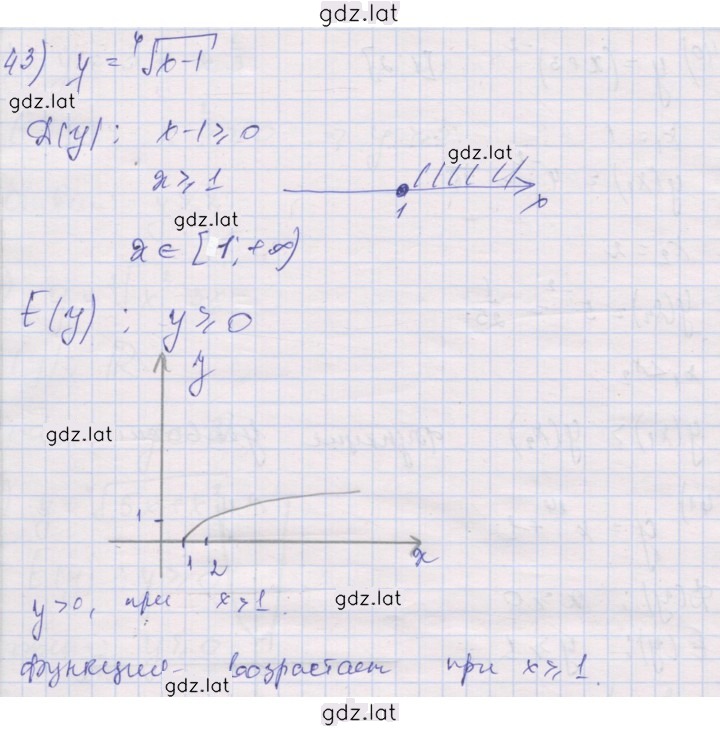 gdz.lat
43) y = ⁴√x-1
gdz.lat
D(y) : x-1 ⩾ 0
gdz.lat
x ⩾ 1
1 x
gdz.lat
x ∈ [1; +∞)
E(y) : y ⩾ 0
y
gdz.lat
1
1 2 x
y > 0, при x > 1
gdz.lat
функция возрастает при x ⩾ 1.
gdz.lat
gdz.lat